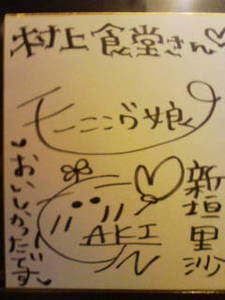 村上食堂さん♡
モーニング娘
新垣里沙
AKI
おいしかったです♥